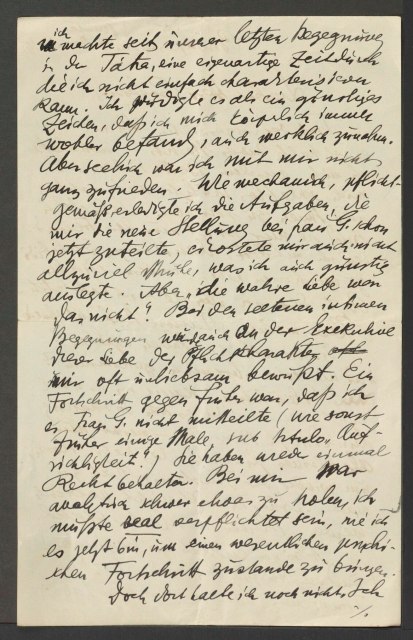 ich machte seit unserer letzten Begegnung
in der Tatra, eine eigenartige Zeit durch
die ich nicht einfach charakterisieren
kann. Ich würdigte es als ein günstiges
Zeichen, daß ich mich körperlich immer
wohler befand, auch merklich zunahm.
Aber seelisch war ich mit mir nicht
ganz zufrieden. Wie mechanisch, pflicht-
gemäß erledigte ich die Aufgaben, die
mir die neue Stellung bei Frau G. schon
jetzt zuteilte, es kostete mir auch nicht
allzuviel Mühe, was ich auch günstig
auslegte. Aber „die wahre Liebe war
das nicht". Bei den seltenen intimen
Begegnungen war auch an der Exekutive
dieser Liebe der Pflichtcharakter
mir oft unliebsam bewußt. Ein
Fortschritt gegen früher war, daß ich
es Frau G. nicht mitteilte (wie sonst
früher einige Male, sub titulo „Auf-
richtigkeit") Sie haben wieder einmal
Recht behalten. Bei mir war
analytisch schwer etwas zu holen, ich
mußte real verpflichtet sein, wie ich
es jetzt bin, um einen wesentlichen psychi-
schen Fortschritt zustande zu bringen.
Doch dort halte ich noch nicht. Ich
./.